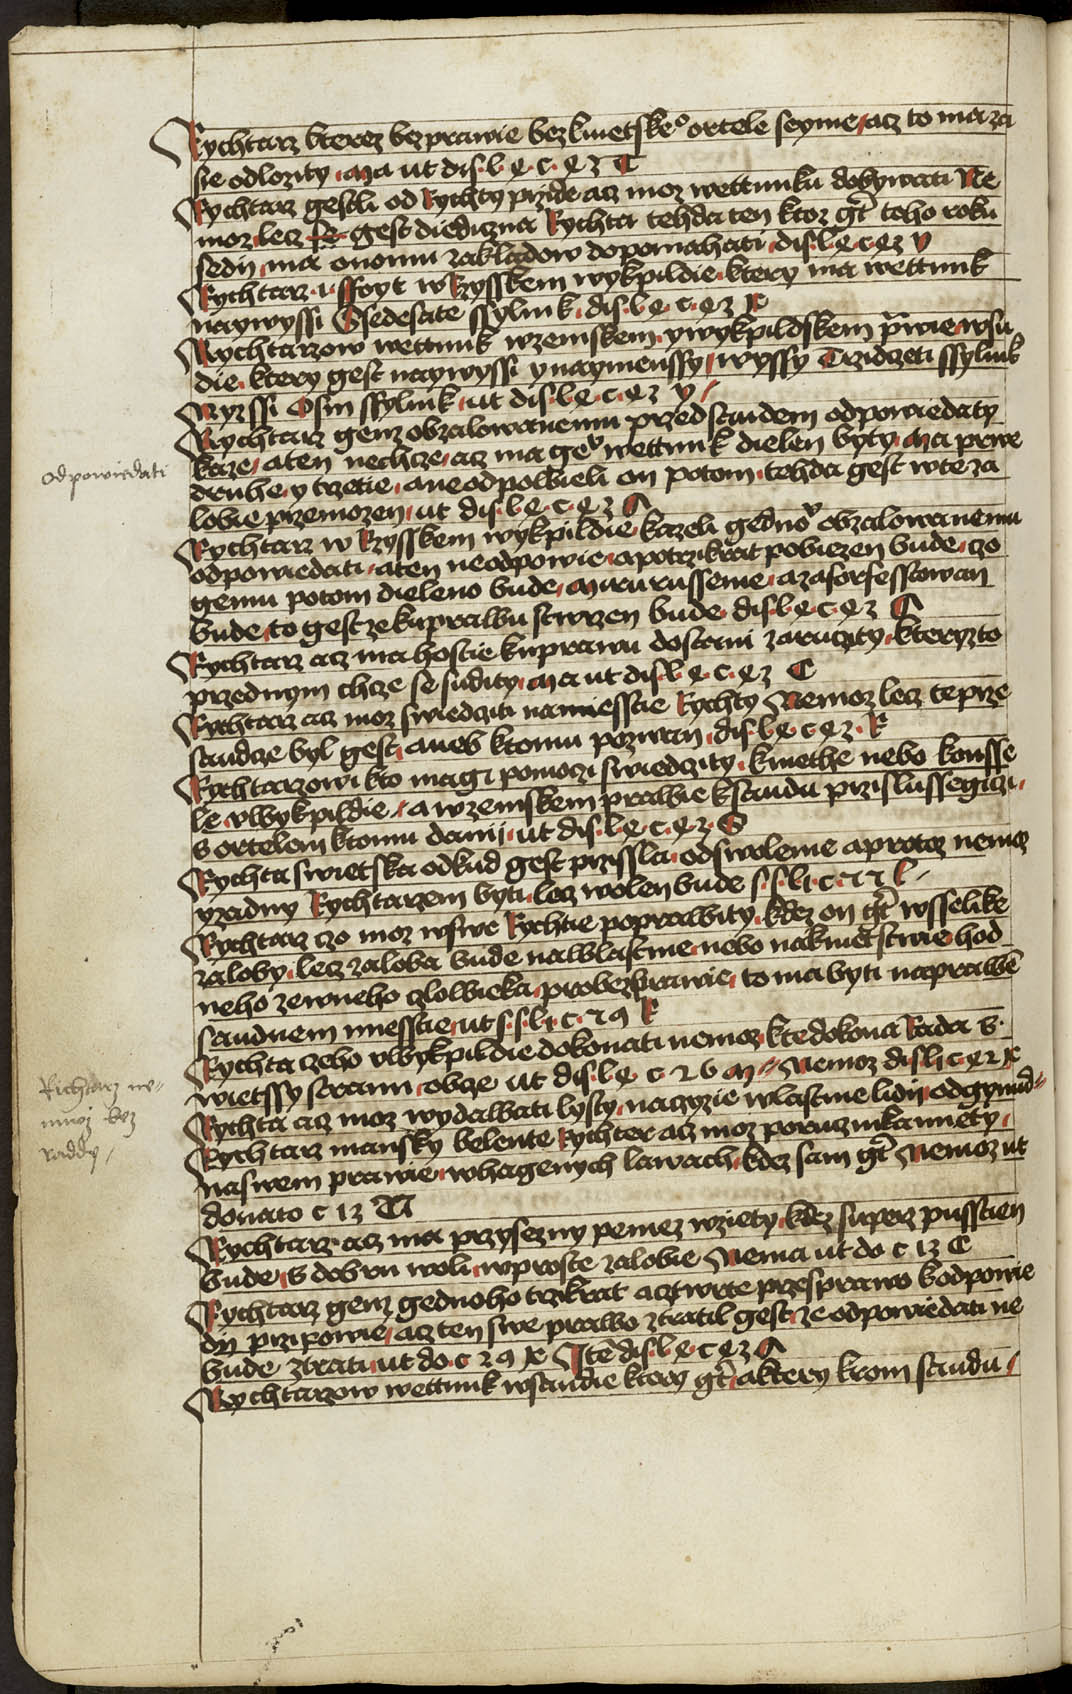 Rychtarz kterez bezprawie bezkmetskeº ortele seyme acz to ma za
sie odlozity Ma ut dis l e c e z C
Rychtarz gestli od Rychty przide acz moz wettunku dobywati Ne
moz lecz gest diediczna Rychta tehda ten ktoz gt toho roku
sedij ma onomu zakladow dopomahati dis l e c e z D
Rychtarz i ffoyt w Rzysskem wykpildie ktery ma wettunk
naywyssi Ssedesate ssylink dis l e c e z R
Rychtarzow wettunk wzemskem ywykpildskem prawie wsu
die ktery gest naywyssi ynaymenssy wyssy Trzidczeti ssylink
Nyzssi Osm ssylink ut dis l e c e z y
Rychtarz genz obzalowanemu przed saudem odpowiedaty
kaze aten nechcze acz ma geº wettunk dielen byty Ma prwe
druhe y trzetie aneodpowieli on potom tehda gest wteza
lobie przemozen ut dis l e c e z A
Rychtarz w Rzysskem wykpildie kazeli gednoº obzalowanemu
odpowiedati aten neodpowie apotrzikrat pobiezen bude czo
gemu potom dieleno bude Mirurussenie azaforfessowan
bude to gest zekuprawu stwrzen bude dis l e c e z A
Rychtarz acz ma hostie kuprawu dostani zaruczyty kteryzto
przednym chcze se sudity Ma ut dis l e c e z C
Rychtarz acz moz swiedcziti namiesstie Rychty Nemoz lecz teprze
saudcze byl gest aneb ktomu pozwan dis l e c e z R
Rychtarzowi kto magi pomoczi swiedczity kmethe nebo konsse
le vwykpildie a wzemskem prawie ksaudu przislussegiczi
s ortelem ktomu danij ut dis l e c e z S
Rychta swietska odkud gest prissla od swolenie aprotoz nemoz
yzadny Rychtarzem byti lecz wolen bude
Rychtarz czo moz wswe Rychtie poprawity kdez on gt wsselike
zaloby lecz zaloba bude nawlastnie nebo nakmetstwie hod
neho zewneho czlowieka probezprawie to ma byti naprawe
saudnem miesstie ut
Rychta czeho vwykpildie dokonati nemoz ktedokona Rada s
wietssy stranu obcze ut dis l e c Nemoz dis
Rychta acz moz wydawati lysty naczyzie wlastnie lidij odgynud
Rychtarz mansky belente Rychter acz moz poruczinkamnety
naswem prawie whagenych lawach kdez sam gt Nemoz ut
donato c 12 N
Rychtarz acz ma przysezny peniez wziety kdez superz pusscien
bude s dobru woli wproste zalobie Nema ut do c 12 C
Rychtarz genz gednoho trzikrat acztwrte przesprawo kodpowie
dij pripowie acz ten swe prawo ztratil gest ze odpowiedati ne
bude ztrati ut do c 29 R Ite dis l e c e z A
Rychtarzow wettunk wsaudie ktery gt aktery krom saudu
odpowiedati
Richtarz ne
muoz bez
raddy